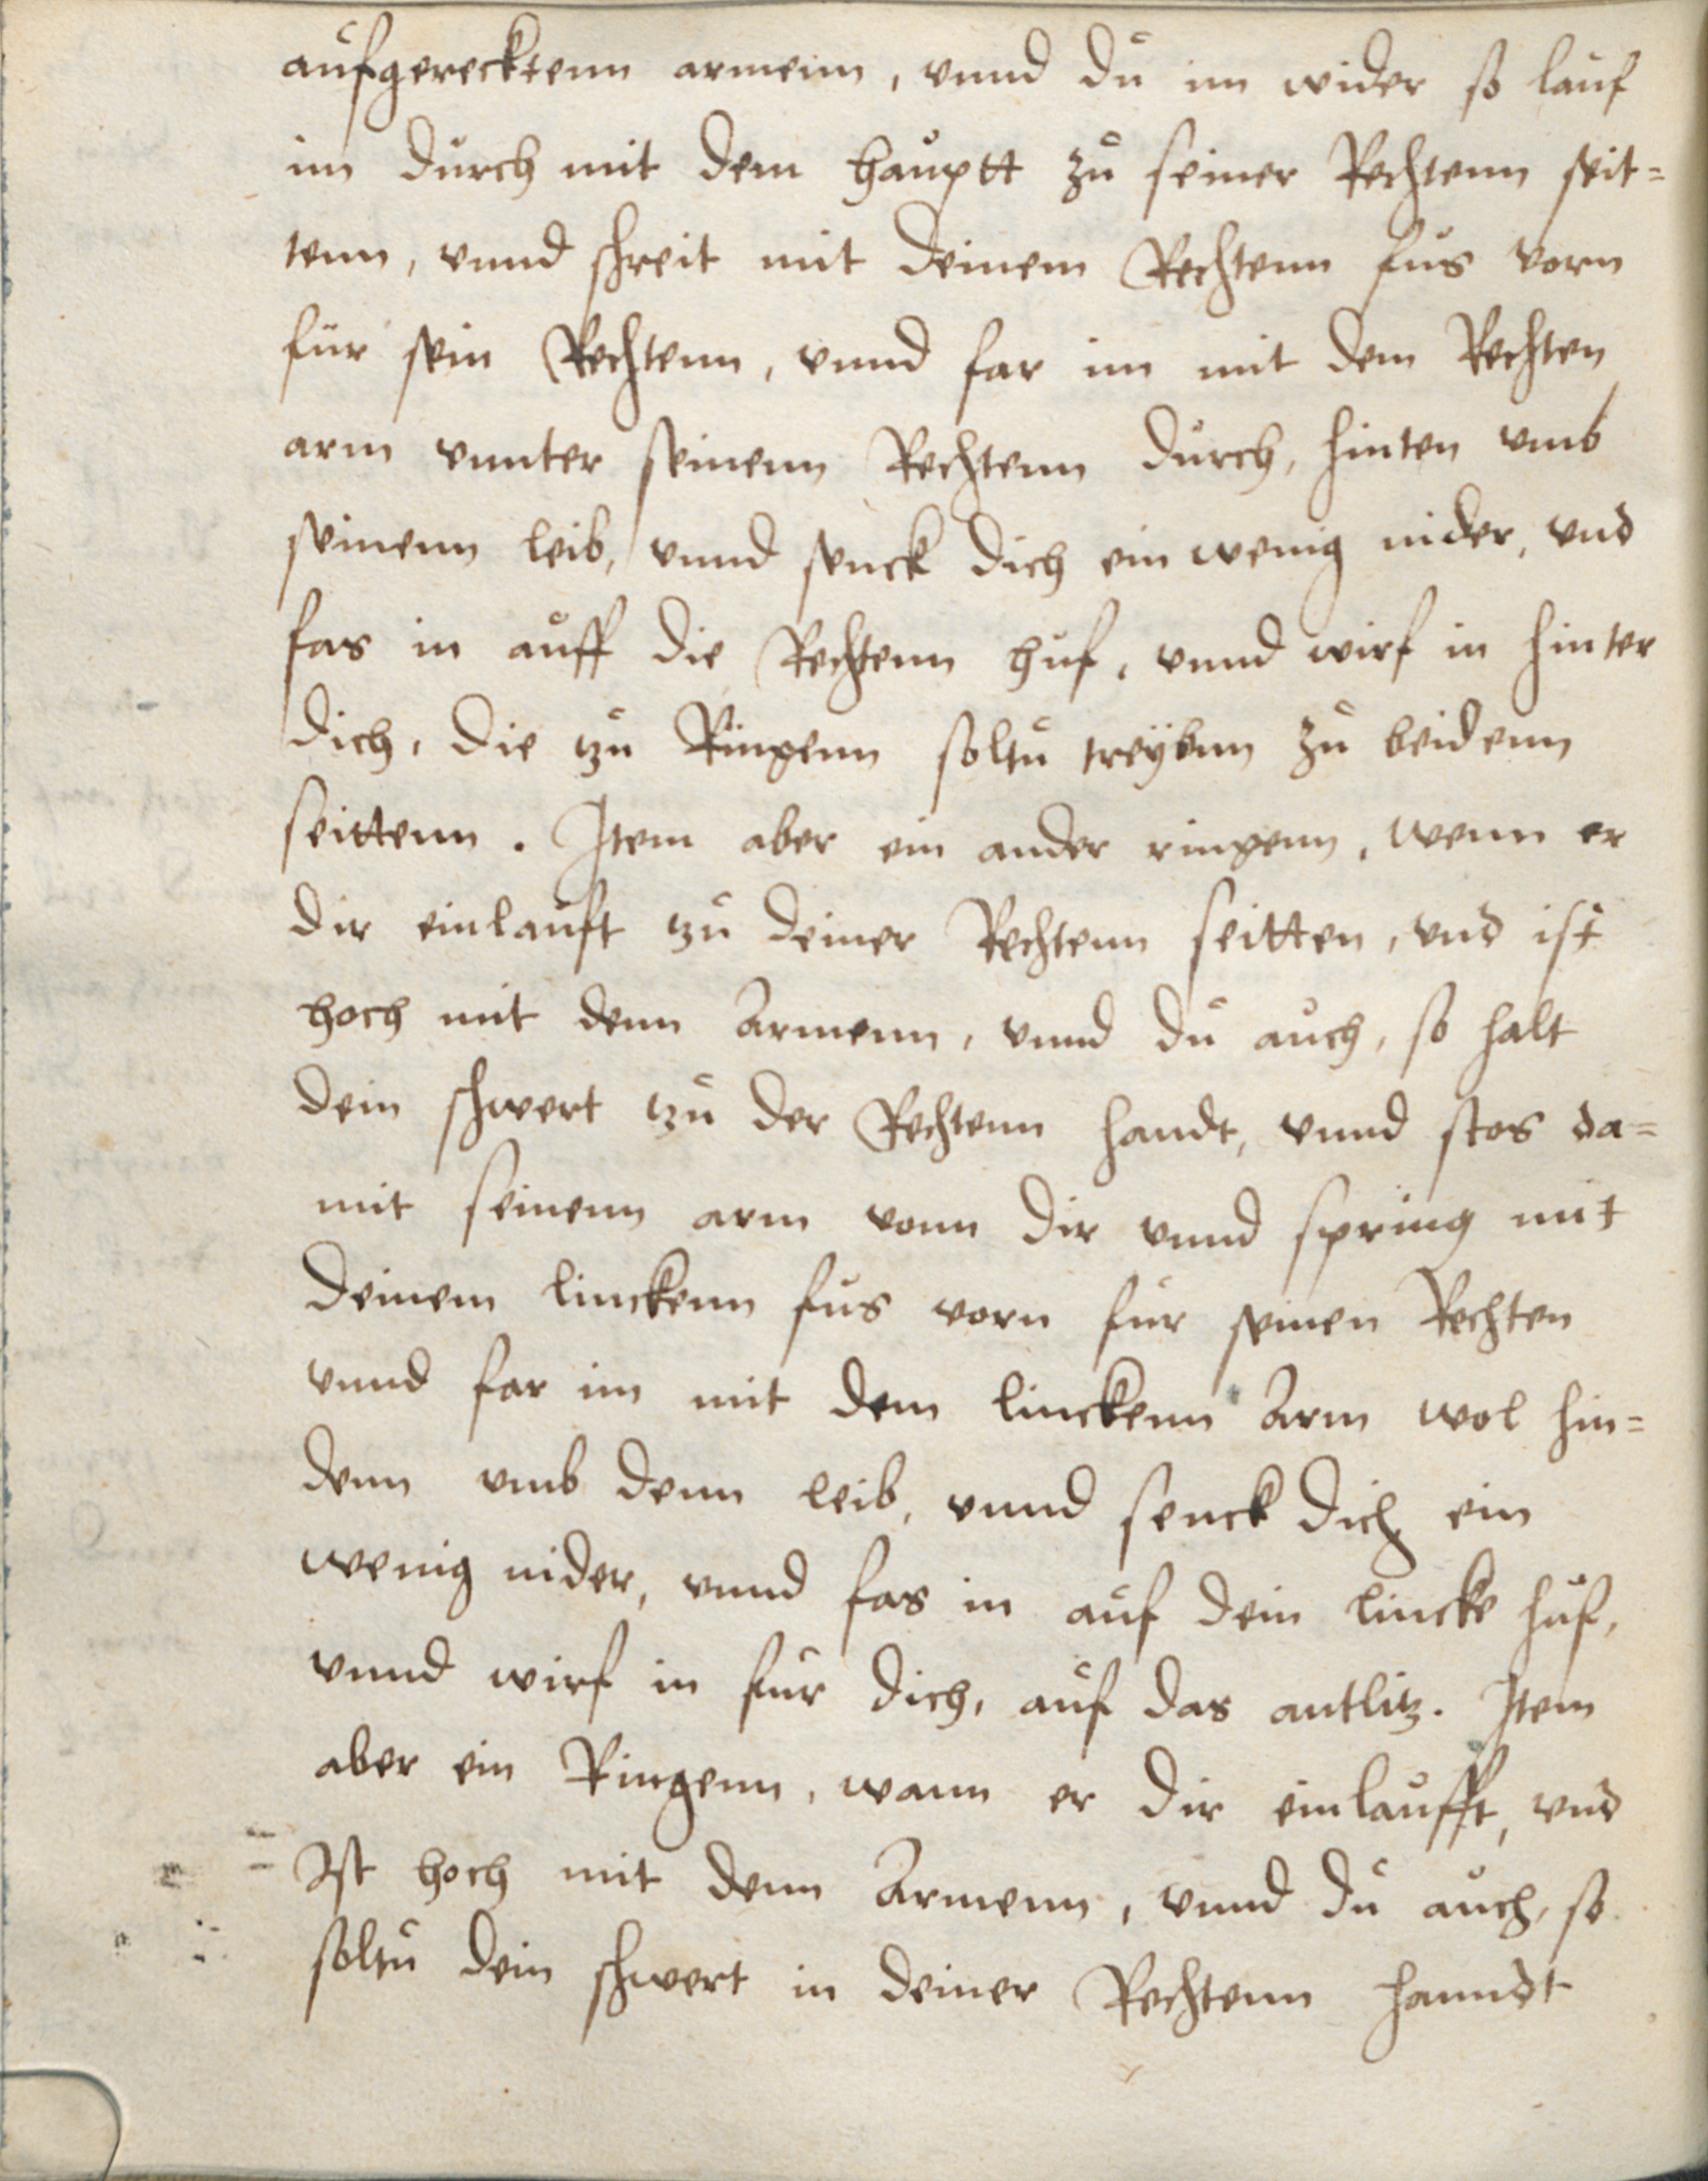 aufgerecktenn armenn, vnnd du im wider so lauf
im durch mit dem hauptt zu seiner Rechtenn seit=
tenn, vnnd schreit mit deinem Rechtenn fus vorn
für sein Rechtenn, vnnd far im mit dem Rechten
arm vnnter seinenn Rechtenn durch, hinten vmb
seinenn leib, vnnd senck dich ein wenig nider, vnd
fas in auff die Rechtenn huf, vnnd wirf in hinter
dich, die zu Ringenn soltu treÿbnn zu beidenn
seittenn. Item aber ein ander ringenn, wenn er
dir einlauft zu deiner Rechtenn seitten, vnd ist
hoch mit denn Armenn, vnnd du auch, so halt
dein schwert zu der Rechtenn handt, vnnd stos da=
mit seinenn arm vonn dir vnnd spring mit
deinem linckenn fus vorn für seinen Rechten
vnnd far im mit dem linckenn Arm wol hin=
denn vmb denn leib, vnnd senck dich ein
wenig nider, vnnd fas in auf dein lincke huf,
vnnd wirf in für dich, auf das antlitz. Item
aber ein Ringenn, wann er dir einlaufft, vnd
Ist hoch mit denn Armenn, vnnd du auch, so
soltu dein schwert in deiner Rechtenn hanndt